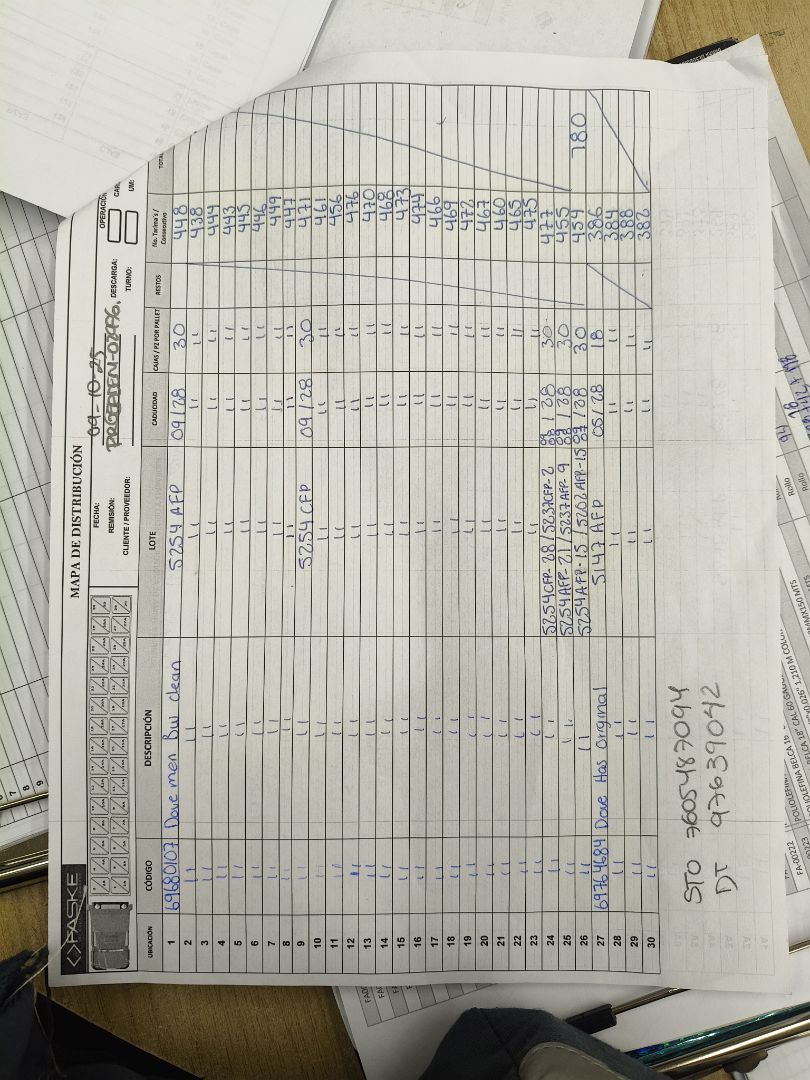 PASKE
MAPA DE DISTRIBUCIÓN
FECHA: 09-10-25
OPERACIÓN
REMISIÓN:
DESCARGA:
CLIENTE / PROVEEDOR:
TURNO:
UM:
UBICACIÓN CÓDIGO DESCRIPCIÓN LOTE CADUCIDAD CAJAS / PZ POR PALLET RESTOS No. Tarima's / Consecutivo TOTAL
1 69680107 Dove men Bw clean 5254 AFP 09/28 30 448
2 '' '' '' '' '' 438
3 '' '' '' '' '' 444
4 '' '' '' '' '' 443
5 '' '' '' '' '' 445
6 '' '' '' '' '' 446
7 '' '' '' '' '' 449
8 '' '' '' '' '' 447
9 '' '' 5254 CFP 09/28 30 471
10 '' '' '' '' '' 461
11 '' '' '' '' '' 456
12 '' '' '' '' '' 476
13 '' '' '' '' '' 470
14 '' '' '' '' '' 468
15 '' '' '' '' '' 473
16 '' '' '' '' '' 474
17 '' '' '' '' '' 466
18 '' '' '' '' '' 469
19 '' '' '' '' '' 472
20 '' '' '' '' '' 467
21 '' '' '' '' '' 460
22 '' '' '' '' '' 465
23 '' '' '' '' '' 475
24 '' '' 5254CFP-28/5237CFP-2 09/28 30 477
25 '' '' 5254AFP-21/5237AFP-9 09/28 30 455
26 '' '' 5254AFP-15/5202AFP-15 09/28 30 454 780
27 69764684 Dove Has Original 5147 AFP 05/28 18 386
28 '' '' '' '' '' 384
29 '' '' '' '' '' 388
30 '' '' '' '' '' 382
STO 7605487094
DT 97639042